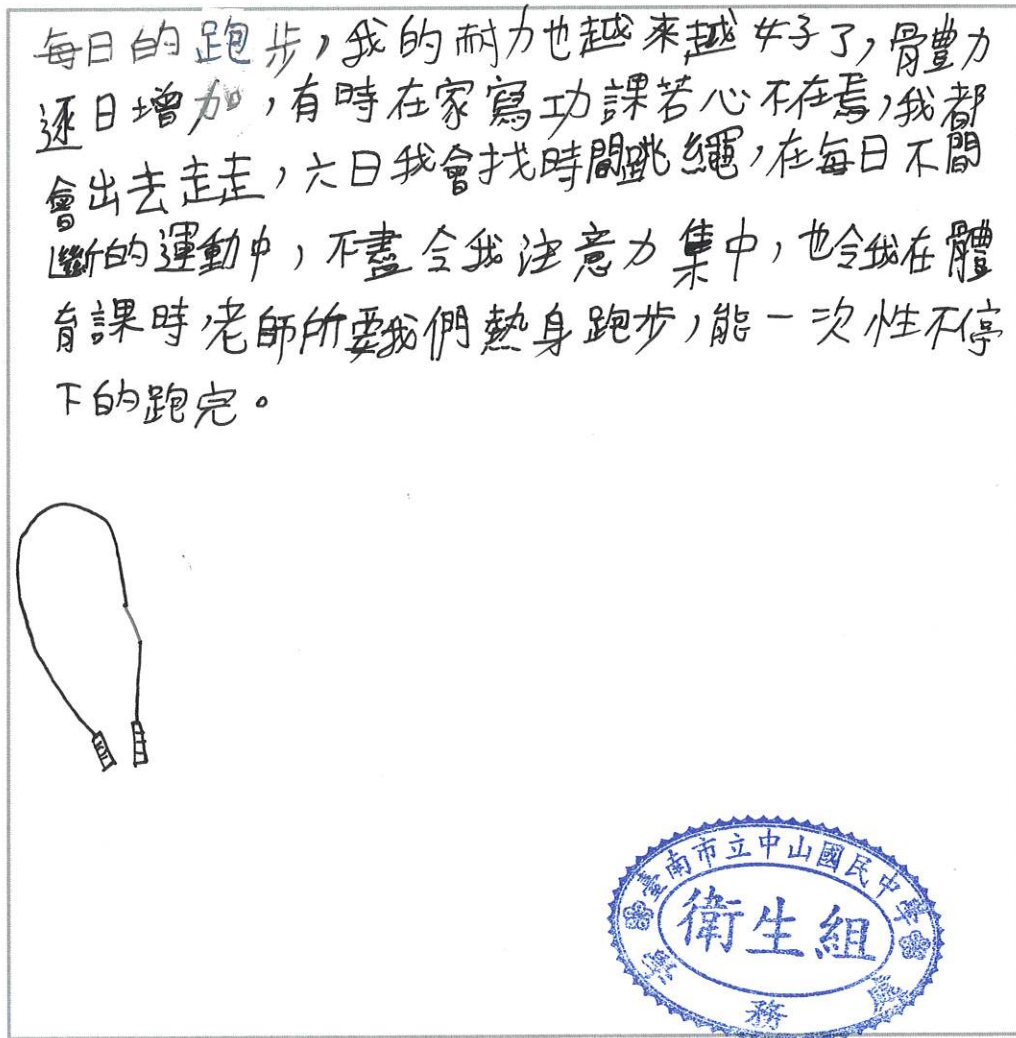 每日的跑步，我的耐力也越來越好了，體力
逐日增加，有時在家寫功課若心不在焉，我都
會出去走走，六日我會找時間跳繩，在每日不間
斷的運動中，不盡令我注意力集中，也令我在體
育課時，老師所要我們熱身跑步，能一次性不停
下的跑完。
臺南市立中山國民中學
衛生組
學務處